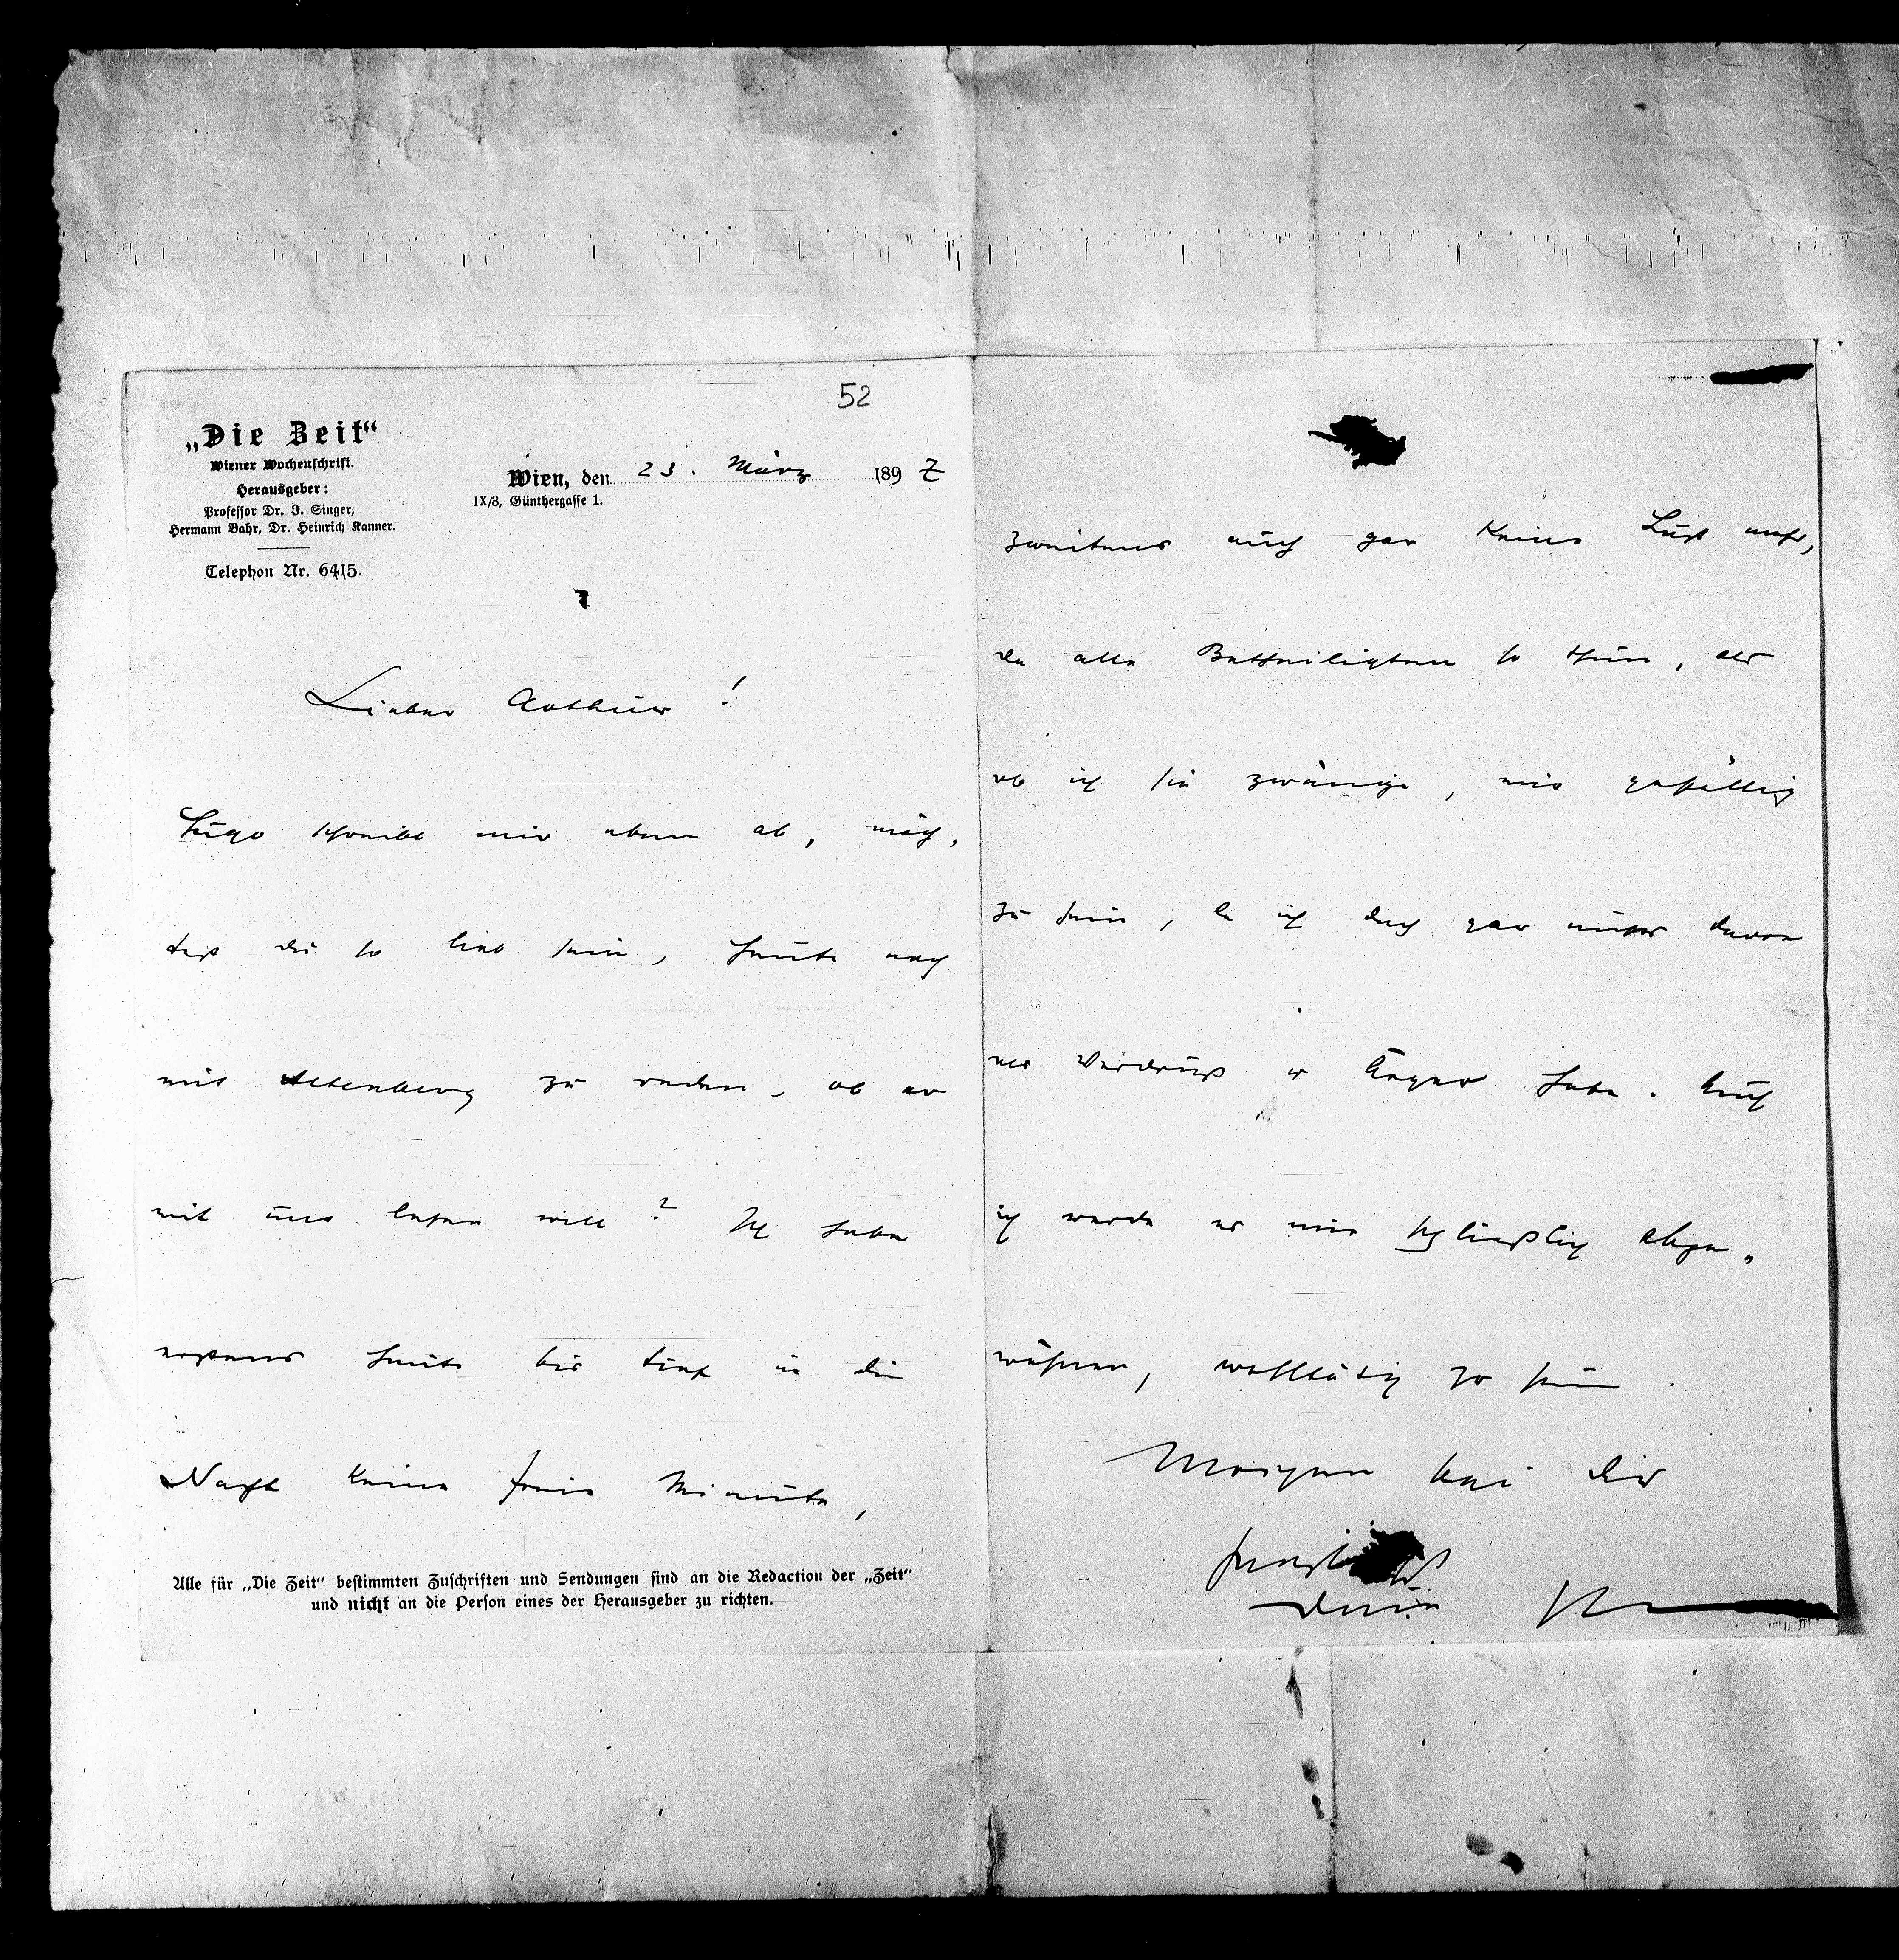 52
„Die Zeit“
Wiener Wochenschrift.
Herausgeber:
Professor Dr. J. Singer,
Hermann Bahr, Dr. Heinrich Kanner.
Telephon Nr. 6415.
Wien, den 23. März 1897
IX/3, Günthergasse 1.
Lieber Arthur!
Hugo schreibt mir eben ab, möch,
test du so lieb sein, heute noch
mit Altenberg zu reden, ob er
mit uns lesen will? Ich habe
erstens heute bis tief in die
Nacht keine freie Minute,
Alle für „Die Zeit“ bestimmten Zuschriften und Sendungen sind an die Redaction der „Zeit“
und nicht an die Person eines der Herausgeber zu richten.
zweitens auch gar keine Lust mehr,
da alle Betheiligten so thun, als
ob ich sie zwänge, mir gefällig
zu sein, da ich doch gar nichts davon
als Verdruß u Ärger habe. Auch
ich werde es mir schließlich abge„
wöhnen, wohltätig zu sein.
Morgen bei dir
herzlichst
dein